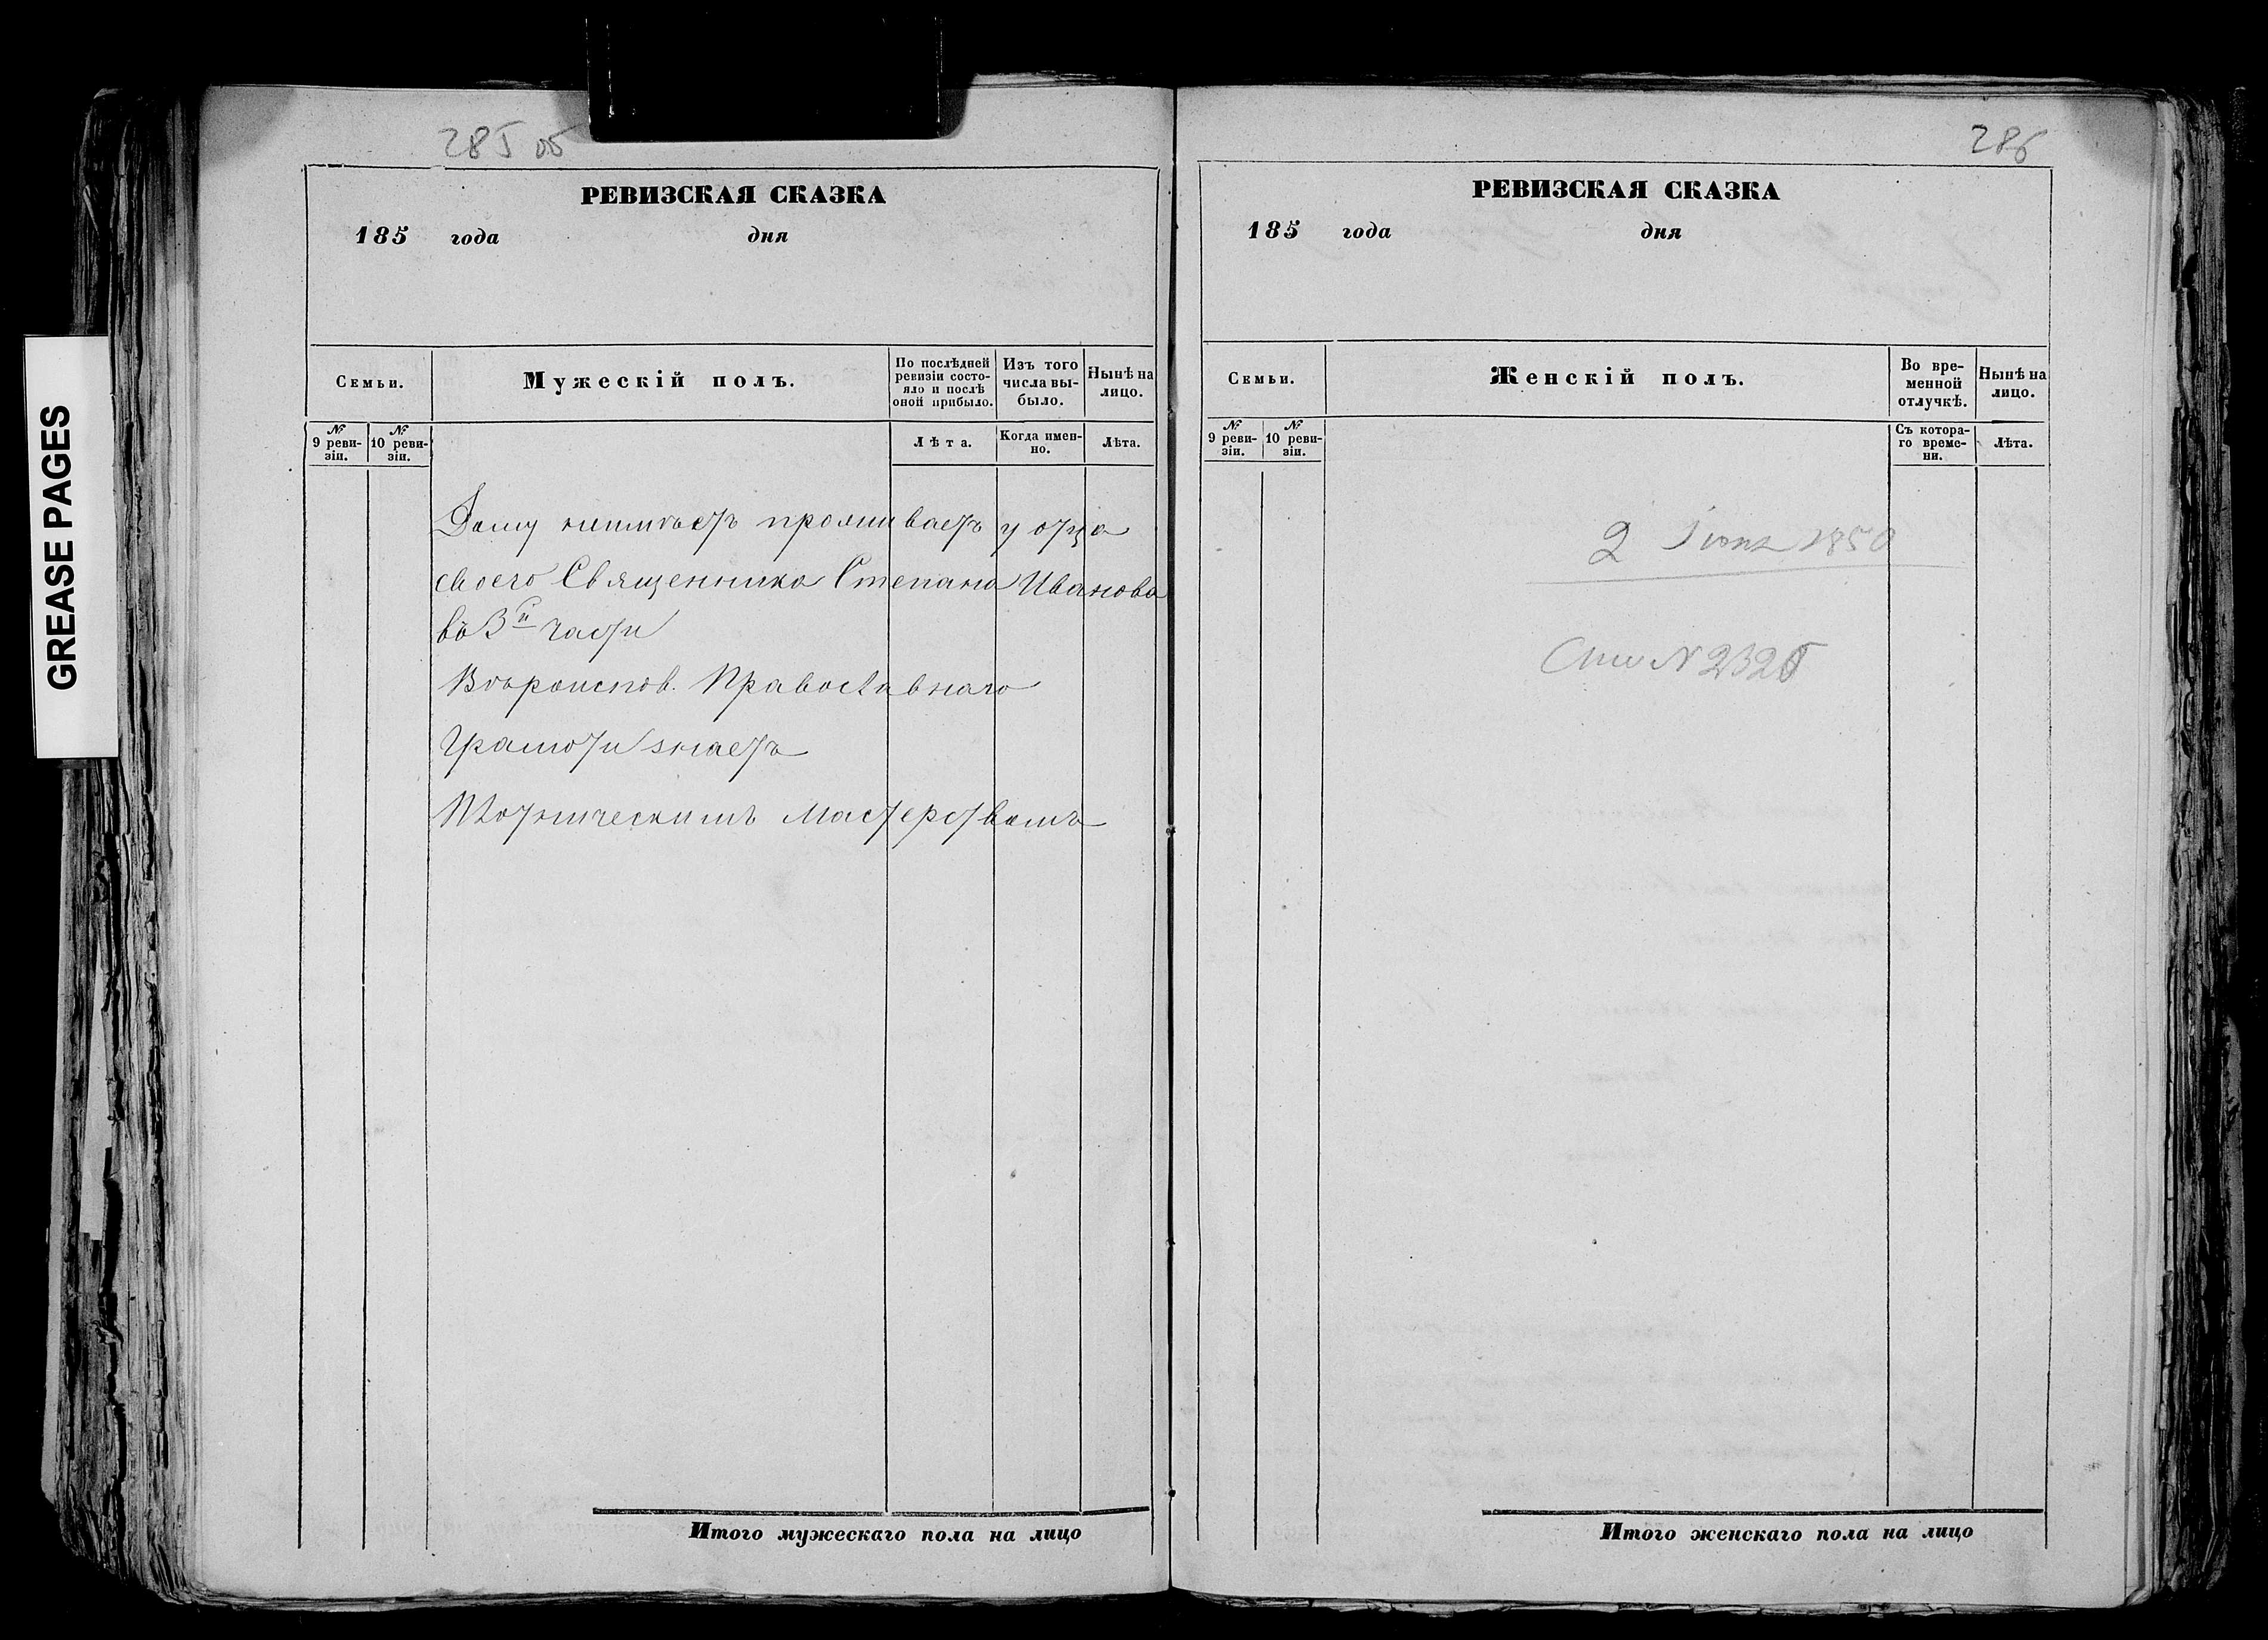 GREASE PAGES
285 об
РЕВИЗСКАЯ СКАЗКА
185 года дня
Семьи.
Мужескій полъ.
По послѣдней ревизіи состояло и послѣ оной прибыло.
Изъ того числа выбыло.
Нынѣ на лицо.
№ 9 ревизіи.
№ 10 ревизіи.
Лѣта.
Когда именно.
Лѣта.
Дому неимѣетъ проживаетъ у отца
своего Священника Степана Иванова
въ 3й части
Вѣроиспов. Православнаго
Грамоти знаетъ
Плотническимъ Мастерствомъ
Итого мужескаго пола на лицо
286
РЕВИЗСКАЯ СКАЗКА
185 года дня
Семьи.
Женскій полъ.
Во временной отлучкѣ.
Нынѣ на лицо.
№ 9 ревизіи.
№ 10 ревизіи.
Съ котораго времени.
Лѣта.
2 1850
№
Итого женскаго пола на лицо